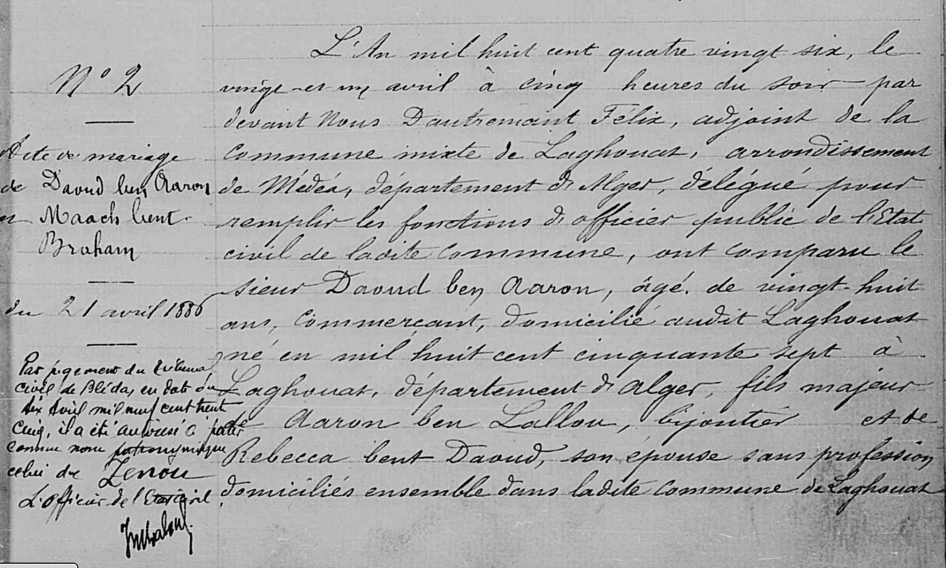 N° 2
Acte de mariage
de Daoud ben Aaron
Maach bent
Braham
du 21 avril 1886
Par jugement du tribunal
civil de Blida, en date du
six avril mil neuf cent trente
cinq, il a été autorisé à porter
comme nom patronymique
celui de Zenou
L'Officier de l'Etat civil
L'An mil huit cent quatre vingt six, le
vingt et un avril à cinq heures du soir par
devant Nous Dautremant Félix, adjoint de la
commune mixte de Laghouat, arrondissement
de Médéa, département d'Alger, délégué pour
remplir les fonctions d'officier public de l'Etat
civil de ladite commune, ont comparu le
sieur Daoud ben Aaron, âgé de vingt-huit
ans, commerçant, domicilié audit Laghouat
né en mil huit cent cinquante sept à
Laghouat, département d'Alger, fils majeur
de Aaron ben Lallou, bijoutier et de
Rebecca bent Daoud, son épouse sans profession
domiciliés ensemble dans ladite commune de Laghouat